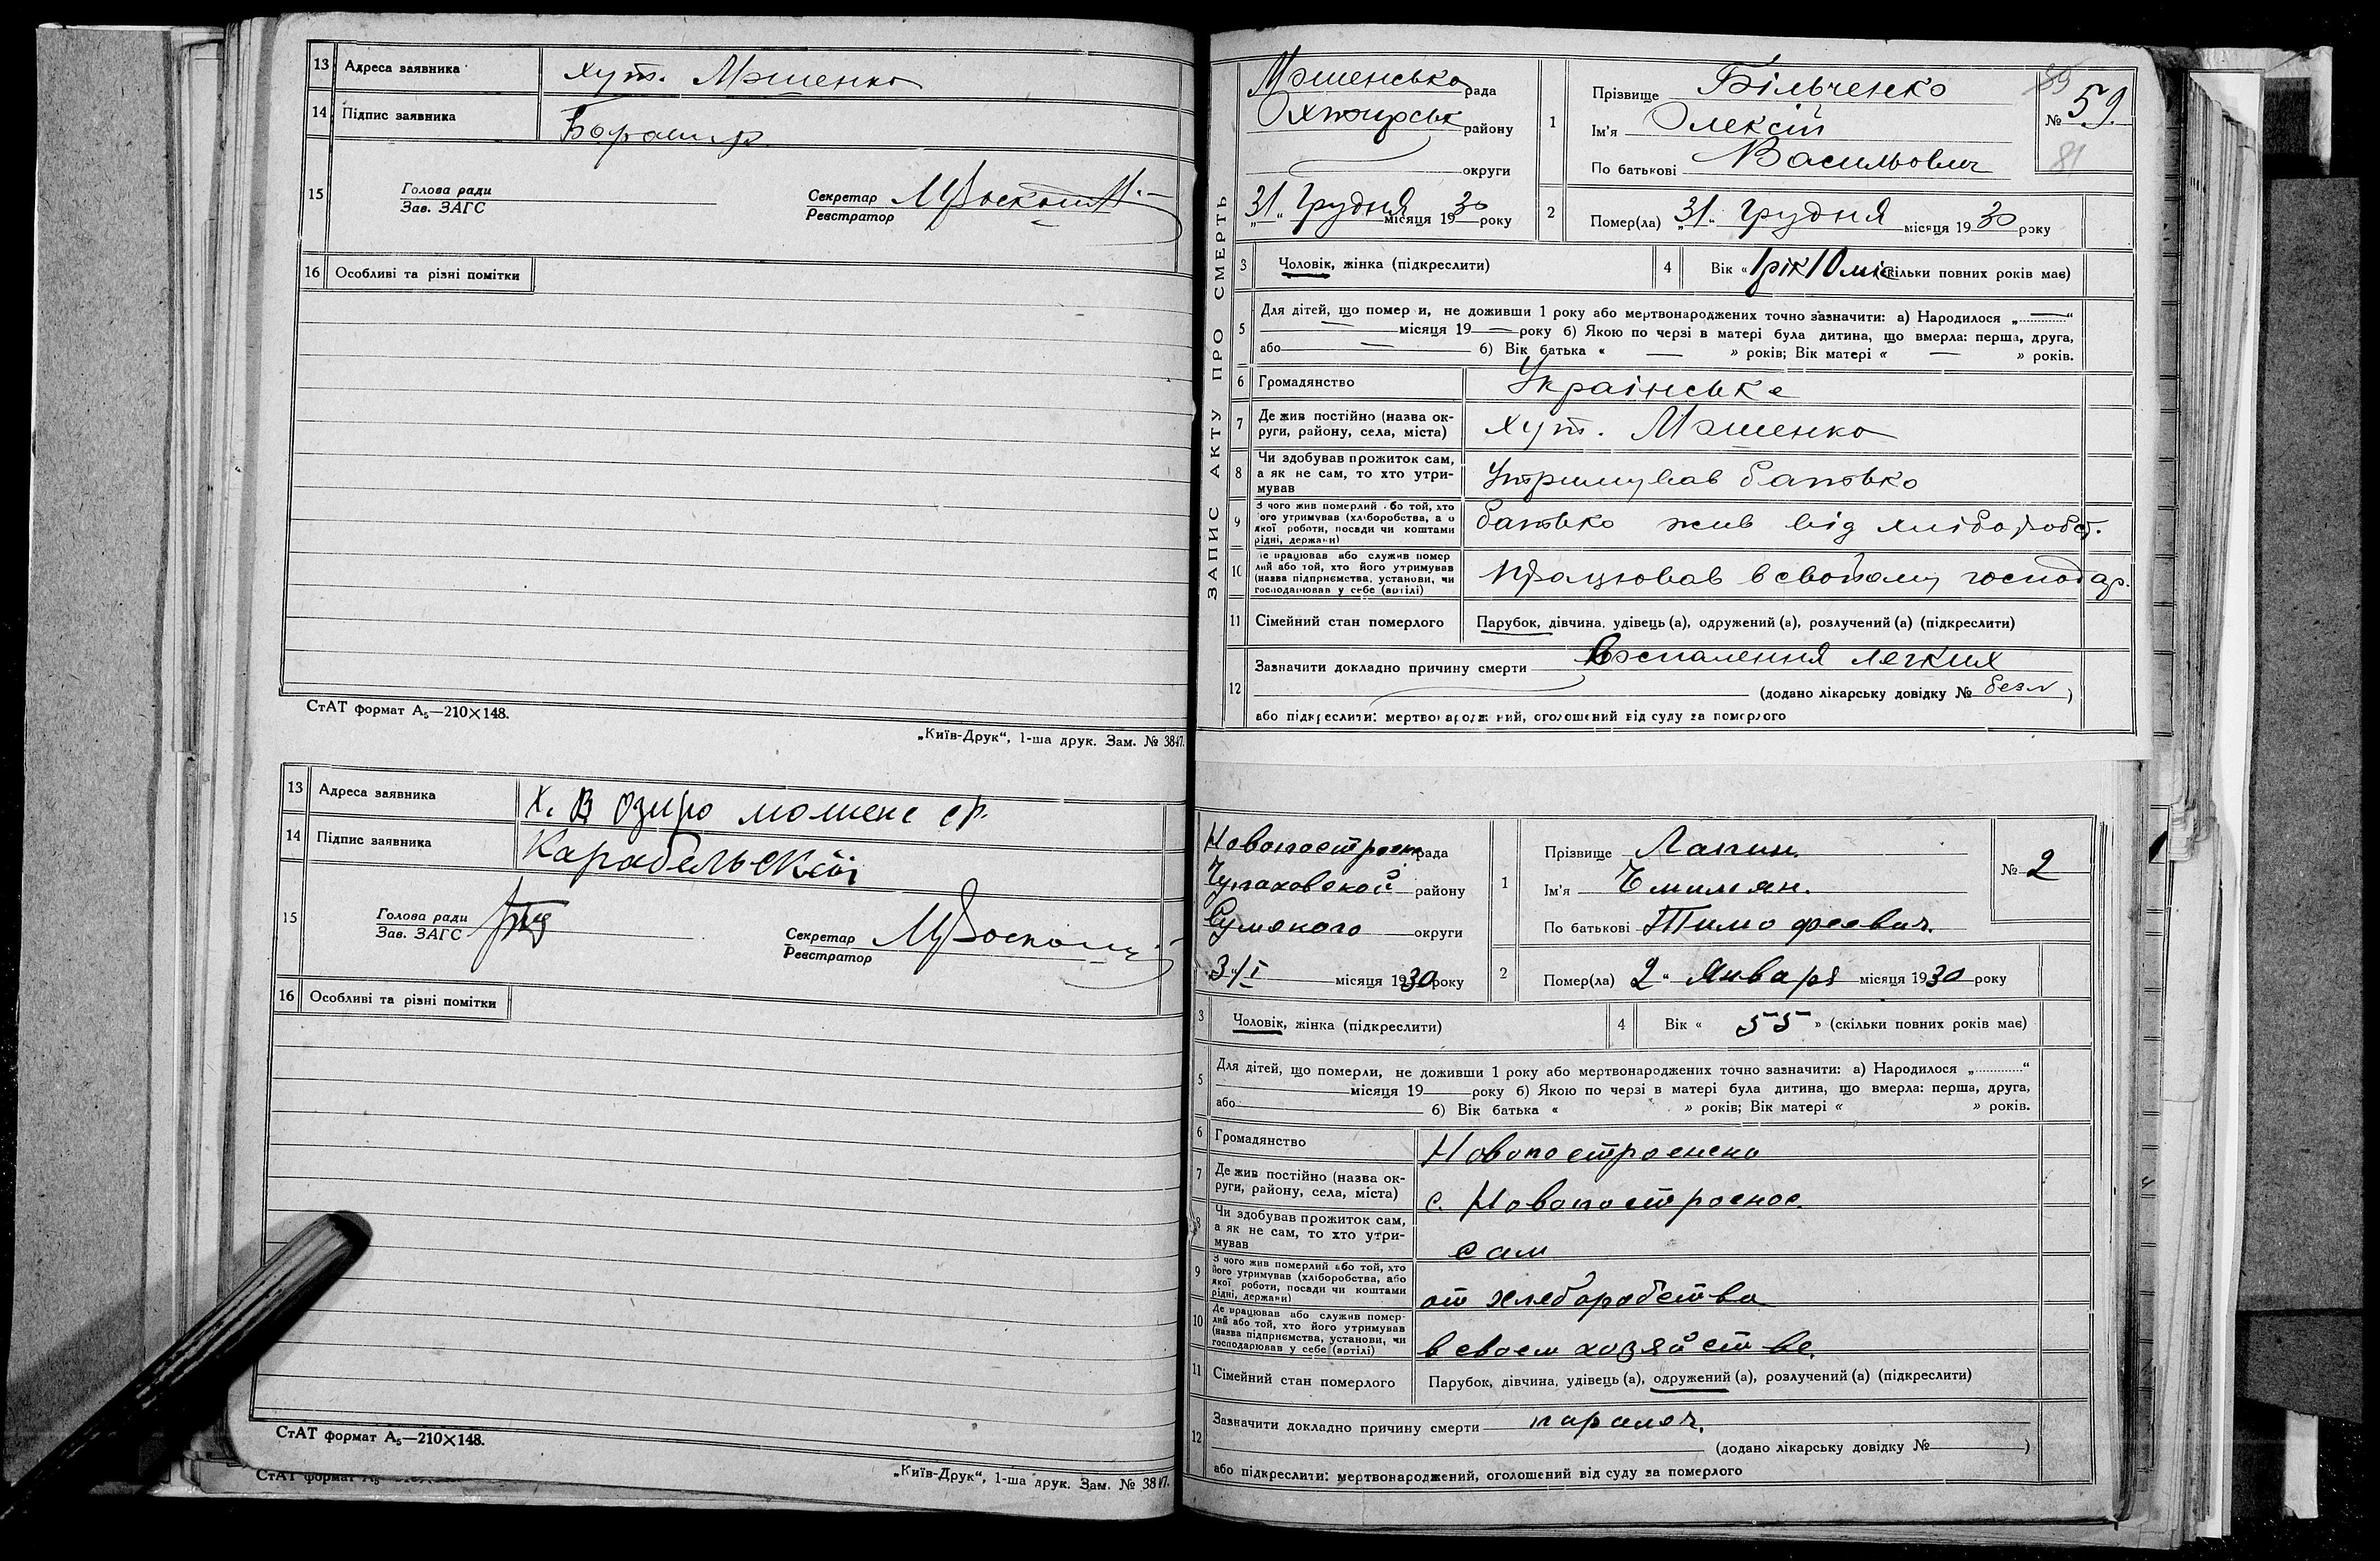 13 Адреса заявника хут. Мошенка
14 Підпис заявника
15 Голова ради
Зав. ЗАГС
Секретар
Реєстратор
16 Особливі та різні помітки
СтАТ формат А5—210×148.
„Київ-Друк“, 1-ша друк. Зам. № 3847.
13 Адреса заявника Х. В Озиро мошенс ср.
14 Підпис заявника Карабельскій
15 Голова ради
Зав. ЗАГС
Секретар
Реєстратор
16 Особливі та різні помітки
СтАТ формат А5—210×148.
„Київ-Друк“, 1-ша друк. Зам. № 3847.
СтАТ формат А5
ЗАПИС АКТУ ПРО СМЕРТЬ
Мошенська рада
Охтирськ району
округи
„31“ Грудня місяця 1930 року
1 Прізвище Більченко
Ім'я Олексій
По батькові Васильович
№ 59.
81
2 Помер(ла) „31“ Грудня місяця 1930 року
3 Чоловік, жінка (підкреслити)
4 Вік « 1 рік 10 міс (скільки повних років має)
5 Для дітей, що померли, не доживши 1 року або мертвонароджених точно зазначити: а) Народилося „—“
— місяця 19— року б) Якою по черзі в матері була дитина, що вмерла: перша, друга,
або — б) Вік батька « — » років; Вік матері « — » років.
6 Громадянство Українське
7 Де жив постійно (назва ок-
руги, району, села, міста) хут. Мошенка
8 Чи здобував прожиток сам,
а як не сам, то хто утри-
мував Утримував батько
9 З чого жив померлий або той, хто
його утримував (хліборобства, або
якої роботи, посади чи коштами
рідні, держави) батько жив від хлібороб.
10 Де працював або служив помер-
лий або той, хто його утримував
(назва підприємства, установи, чи
господарював у себе (артілі) працював в свойому господар.
11 Сімейний стан померлого Парубок, дівчина, удівець (а), одружений (а), розлучений (а) (підкреслити)
12 Зазначити докладно причину смерти воспалення легких
(додано лікарську довідку № без )
або підкреслити: мертвонароджений, оголошений від суду за померлого
Новопостроен рада
Чупаховской району
Сумского округи
3/I місяця 1930 року
1 Прізвище Лапин.
Ім'я Емилиян.
По батькові Тимофеевич.
№ 2
2 Помер(ла) 2“ Января місяця 1930 року
3 Чоловік, жінка (підкреслити)
4 Вік « 55 » (скільки повних років має)
5 Для дітей, що померли, не доживши 1 року або мертвонароджених точно зазначити: а) Народилося „“
місяця 19 року б) Якою по черзі в матері була дитина, що вмерла: перша, друга,
або б) Вік батька « » років; Вік матері « » років.
6 Громадянство Новопостроенска
7 Де жив постійно (назва ок-
руги, району, села, міста) с. Новопостроеное.
8 Чи здобував прожиток сам,
а як не сам, то хто утри-
мував сам
9 З чого жив померлий або той, хто
його утримував (хліборобства, або
якої роботи, посади чи коштами
рідні, держави) от хлеборобства
10 Де працював або служив помер-
лий або той, хто його утримував
(назва підприємства, установи, чи
господарював у себе (артілі) в своем хозяйстве.
11 Сімейний стан померлого Парубок, дівчина, удівець (а), одружений (а), розлучений (а) (підкреслити)
12 Зазначити докладно причину смерти паралеч.
(додано лікарську довідку № )
або підкреслити: мертвонароджений, оголошений від суду за померлого